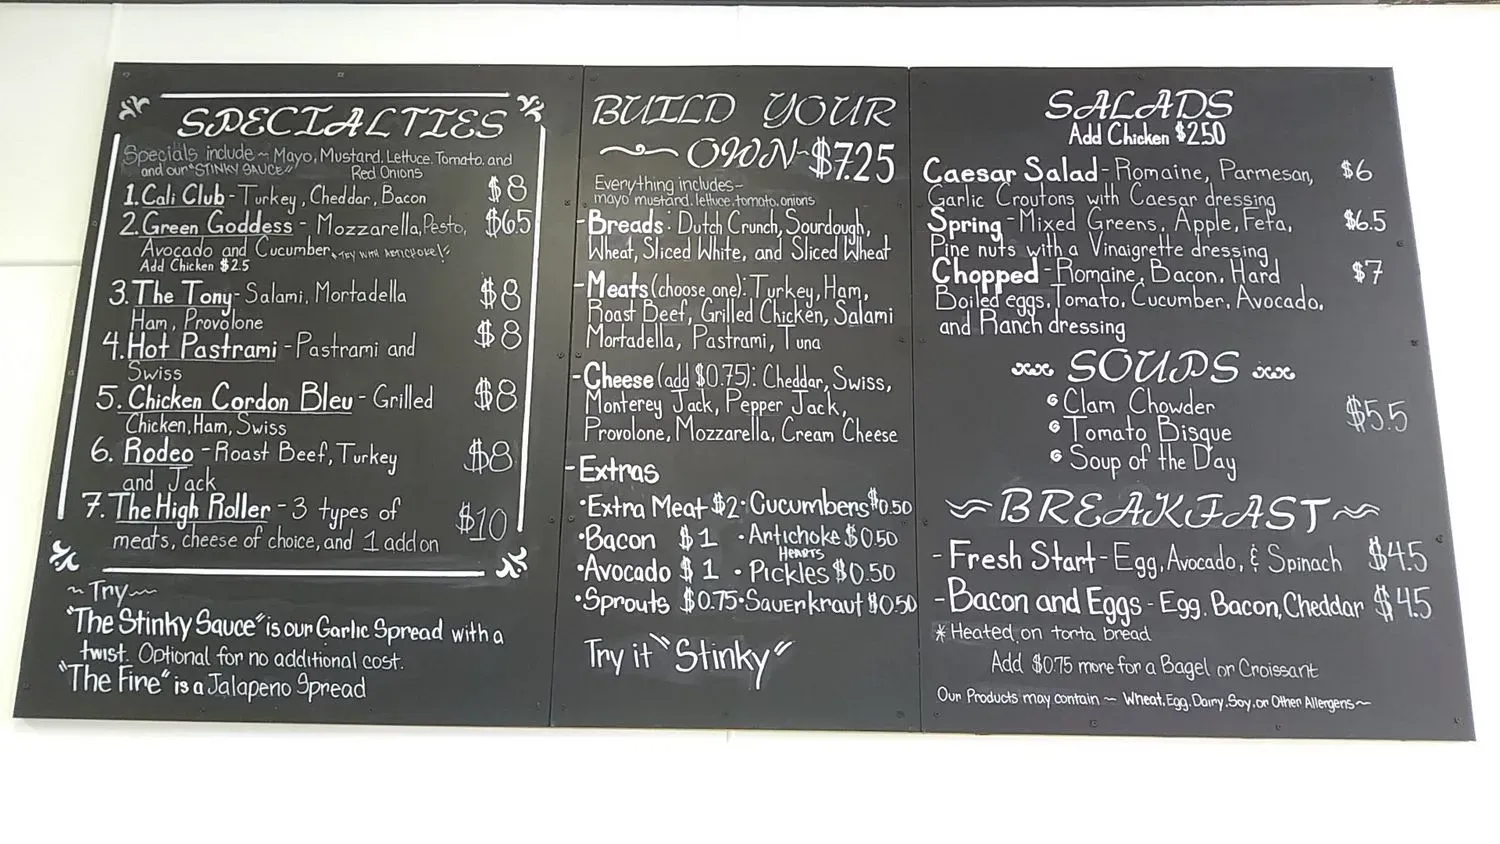 SPECIALTIES
Specials include ~ Mayo, Mustard, Lettuce, Tomato, and
and our "STINKY SAUCE" Red Onions
1. Cali Club - Turkey, Cheddar, Bacon $8
2. Green Goddess - Mozzarella, Pesto, $6.5
Avocado and Cucumber *TRY WITH ARTICHOKE!*
Add Chicken $2.5
3. The Tony - Salami, Mortadella $8
Ham, Provolone
4. Hot Pastrami - Pastrami and $8
Swiss
5. Chicken Cordon Bleu - Grilled $8
Chicken, Ham, Swiss
6. Rodeo - Roast Beef, Turkey $8
and Jack
7. The High Roller - 3 types of $10
meats, cheese of choice, and 1 add on
~ Try ~
"The Stinky Sauce" is our Garlic Spread with a
twist. Optional for no additional cost.
"The Fire" is a Jalapeno Spread
BUILD YOUR
OWN ~ $7.25
Everything includes ~
mayo, mustard, lettuce, tomato, onions
- Breads: Dutch Crunch, Sourdough,
Wheat, Sliced White, and Sliced Wheat
- Meats (choose one): Turkey, Ham,
Roast Beef, Grilled Chicken, Salami
Mortadella, Pastrami, Tuna
- Cheese (add $0.75): Cheddar, Swiss,
Monterey Jack, Pepper Jack,
Provolone, Mozzarella, Cream Cheese
- Extras
• Extra Meat $2 • Cucumbers $0.50
• Bacon $1 • Antichoke $0.50
HEARTS
• Avocado $1 • Pickles $0.50
• Sprouts $0.75 • Sauerkraut $0.50
Try it "Stinky"
SALADS
Add Chicken $2.50
Caesar Salad - Romaine, Parmesan, $6
Garlic Croutons with Caesar dressing
Spring - Mixed Greens, Apple, Feta, $6.5
Pine nuts with a Vinaigrette dressing
Chopped - Romaine, Bacon, Hard $7
Boiled eggs, Tomato, Cucumber, Avocado,
and Ranch dressing
SOUPS
Clam Chowder
Tomato Bisque $5.5
Soup of the Day
~ BREAKFAST ~
- Fresh Start - Egg, Avocado, & Spinach $4.5
- Bacon and Eggs - Egg, Bacon, Cheddar $4.5
* Heated on torta bread
Add $0.75 more for a Bagel or Croissant
Our Products may contain ~ Wheat, Egg, Dairy, Soy, or Other Allergens ~